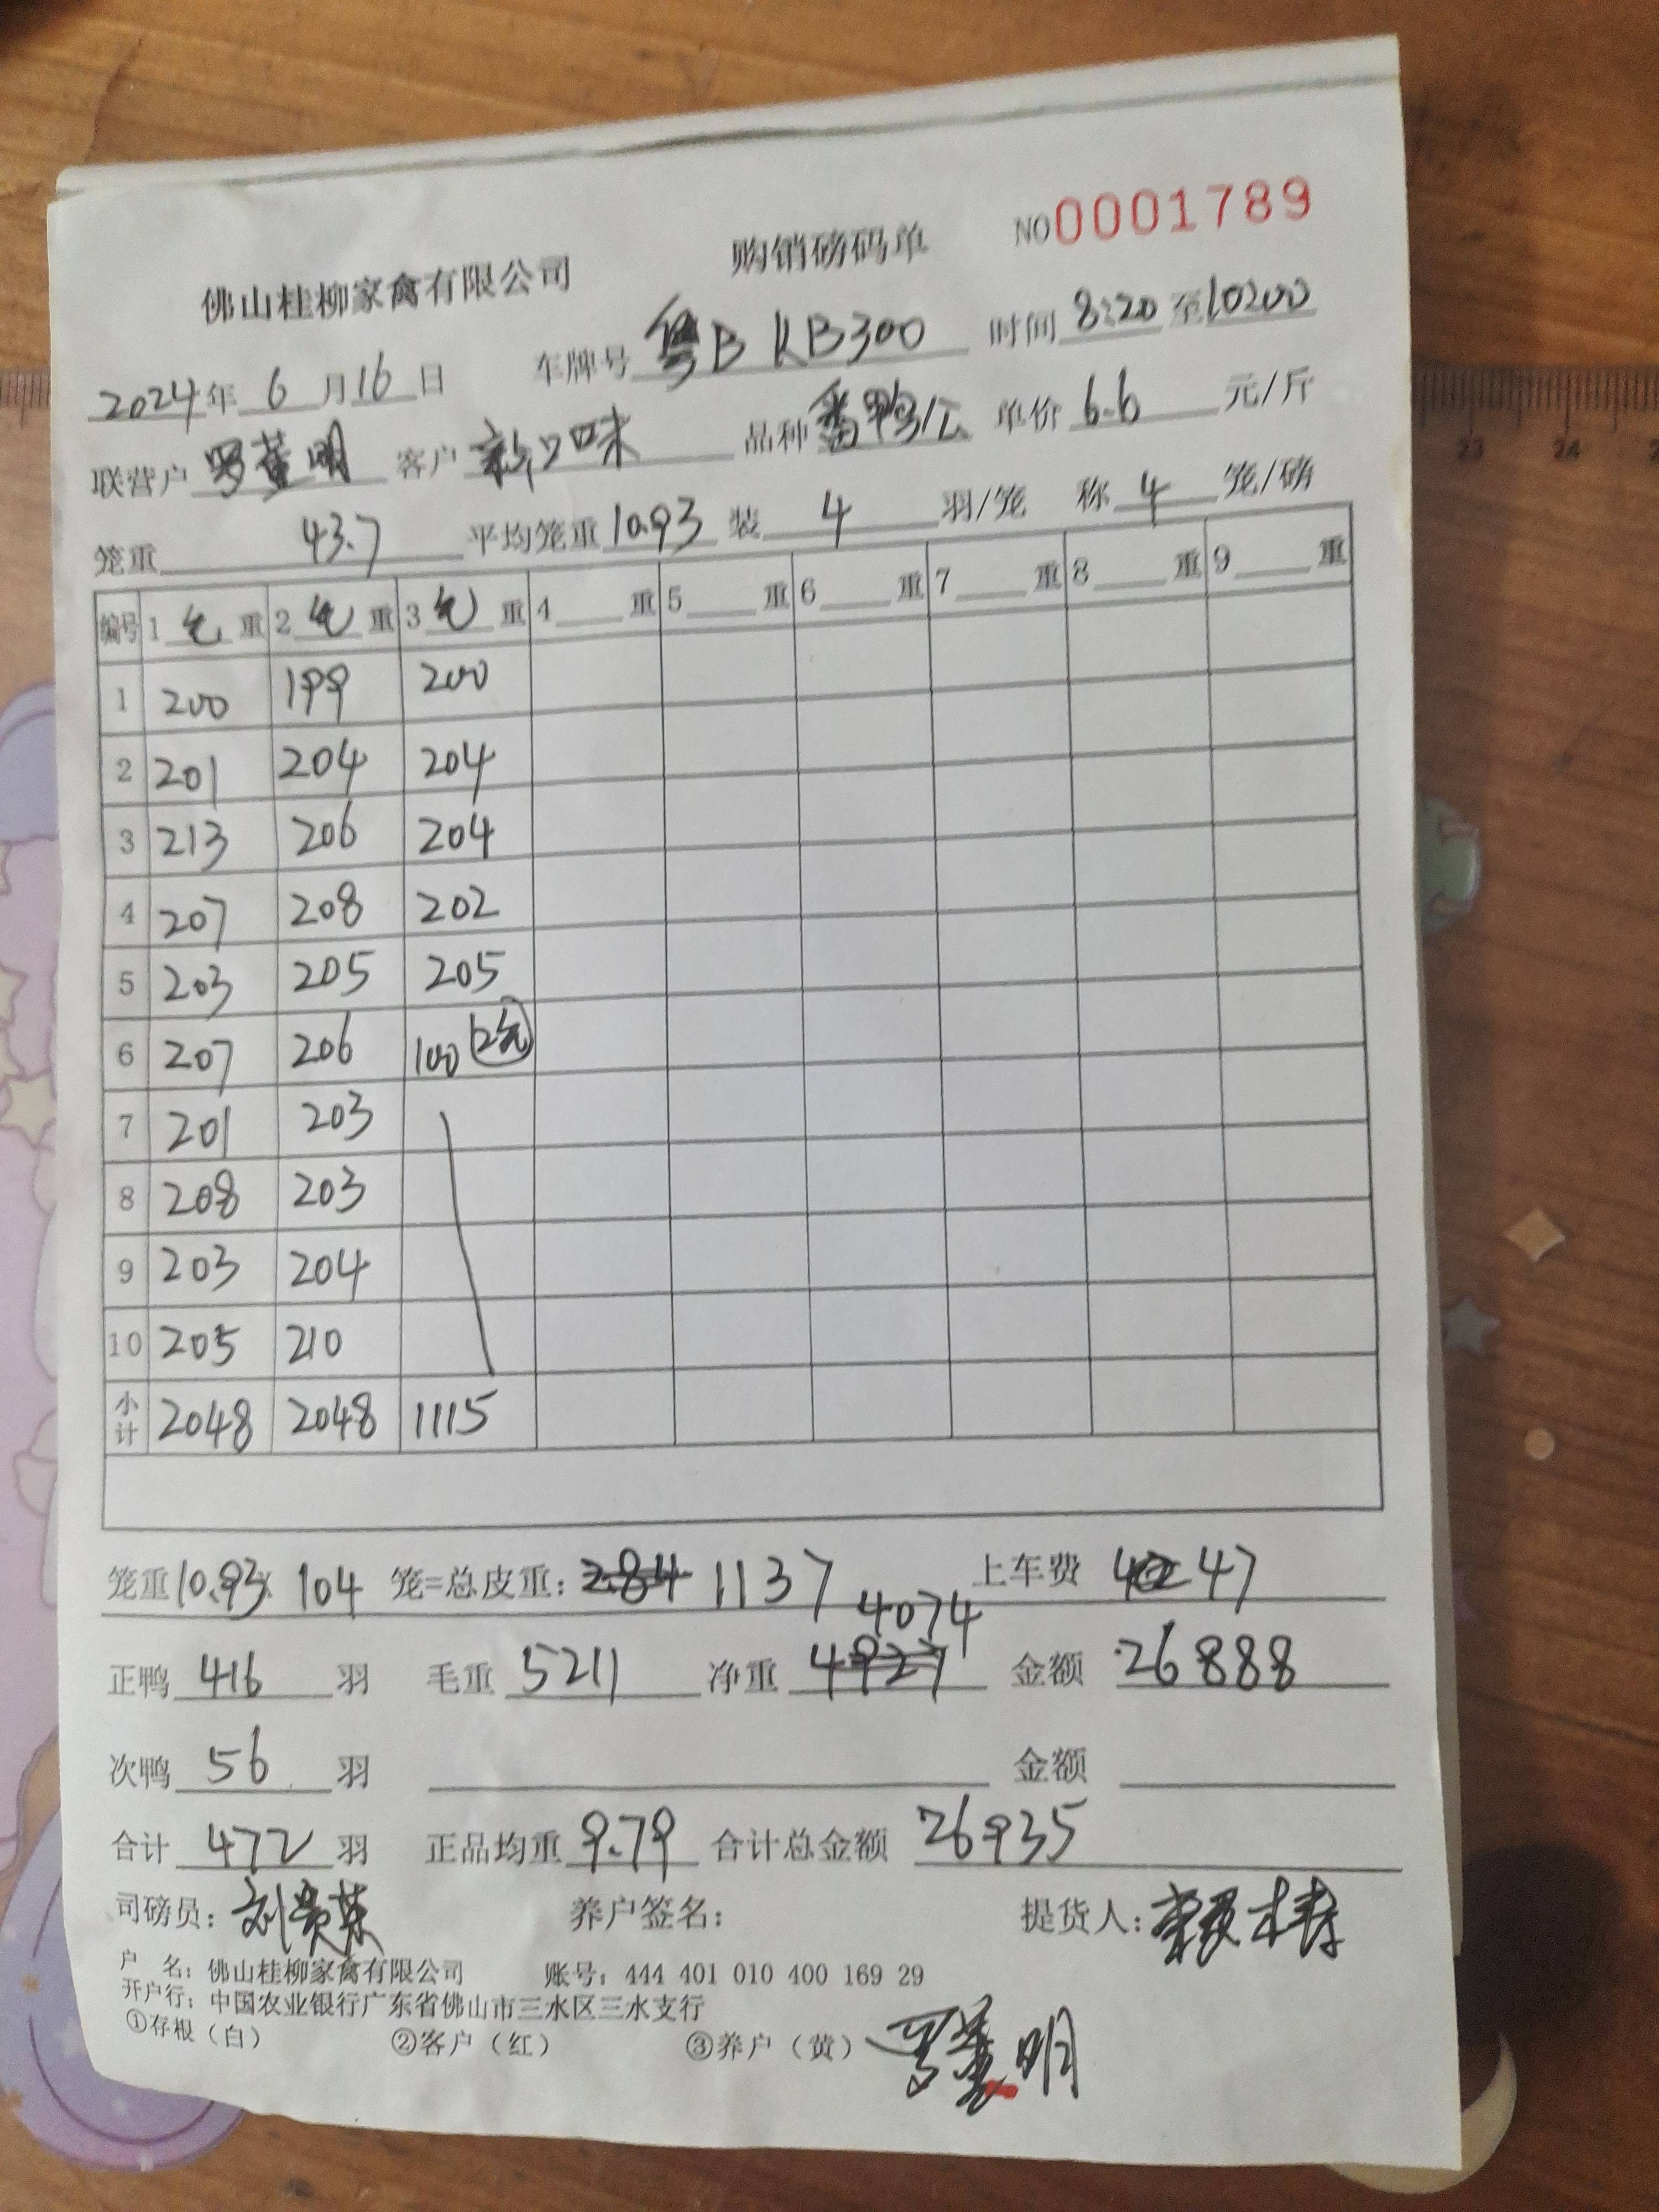 NO 0001789
佛山桂柳家禽有限公司 购销磅码单
2024年 6 月 16 日 车牌号 粤B KB300 时间 8:20 至 10:00
联营户 罗 明 客户 新口味 品种 番鸭公 单价 6.6 元/斤
笼重 43.7 平均笼重 10.93 装 4 羽/笼 称 4 笼/磅
编号 1 毛 重 2 毛 重 3 毛 重 4 重 5 重 6 重 7 重 8 重 9 重
1 200 199 200
2 201 204 204
3 213 206 204
4 207 208 202
5 203 205 205
6 207 206 100 2笼
7 201 203
8 208 203
9 203 204
10 205 210
小计 2048 2048 1115
笼重 10.93 × 104 笼=总皮重: 284 1137 上车费 47
正鸭 416 羽 毛重 5211 净重 4927 4074 金额 26888
次鸭 56 羽 金额
合计 472 羽 正品均重 9.79 合计总金额 26935
司磅员: 刘贵英 养户签名: 提货人:
户 名: 佛山桂柳家禽有限公司 账号: 444 401 010 400 169 29
开户行: 中国农业银行广东省佛山市三水区三水支行
①存根（白） ②客户（红） ③养户（黄） 罗 明